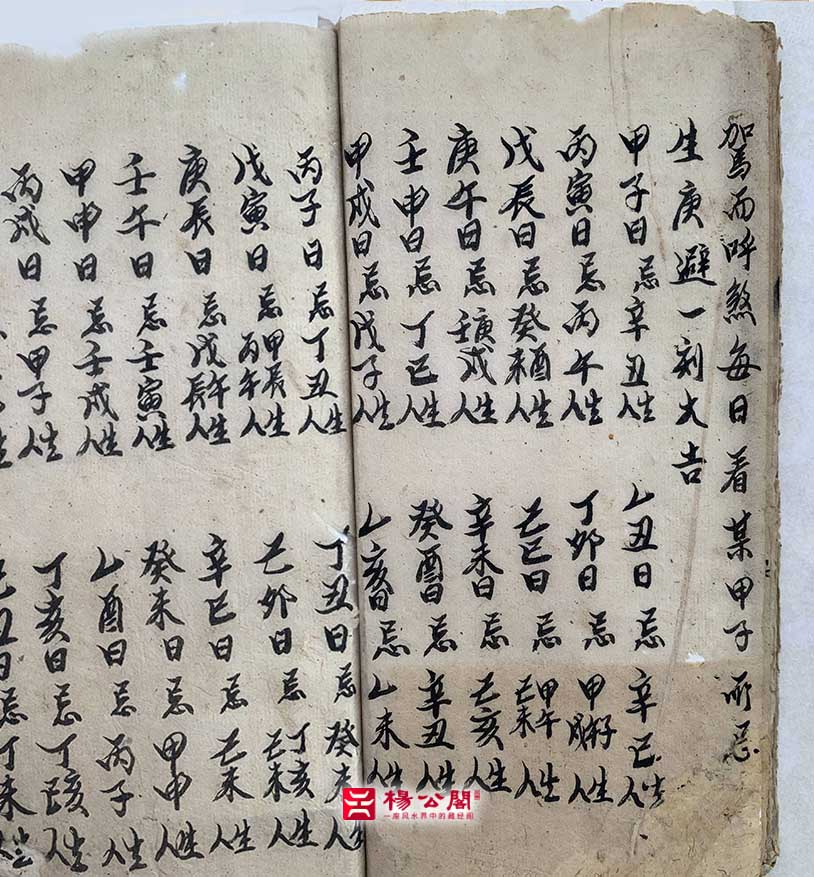 駕而呼煞每日看某甲子所忌
生庚避一刻大吉
甲子日忌辛丑人生 乙丑日忌辛巳人生
丙寅日忌丙午人生 丁卯日忌甲戌人生
戊辰日忌癸未酉人生 己巳日忌甲午己未人生
庚午日忌壬庚戌人生 辛未日忌己亥人生
壬申日忌丁巳人生 癸酉日忌辛丑人生
甲戌日忌戊子人生 乙亥日忌乙未人生
丙子日忌丁丑人生 丁丑日忌癸未人生
戊寅日忌甲辰丙午人生 己卯日忌丁亥己未人生
庚辰日忌戊辰午人生 辛巳日忌己未人生
壬午日忌壬寅人生 癸未日忌甲申人生
甲申日忌壬戌人生 乙酉日忌丙子人生
丙戌日忌甲子人生 丁亥日忌丁巳亥人生
己丑日忌丁未人生
楊公閣
一座风水界中的藏经阁